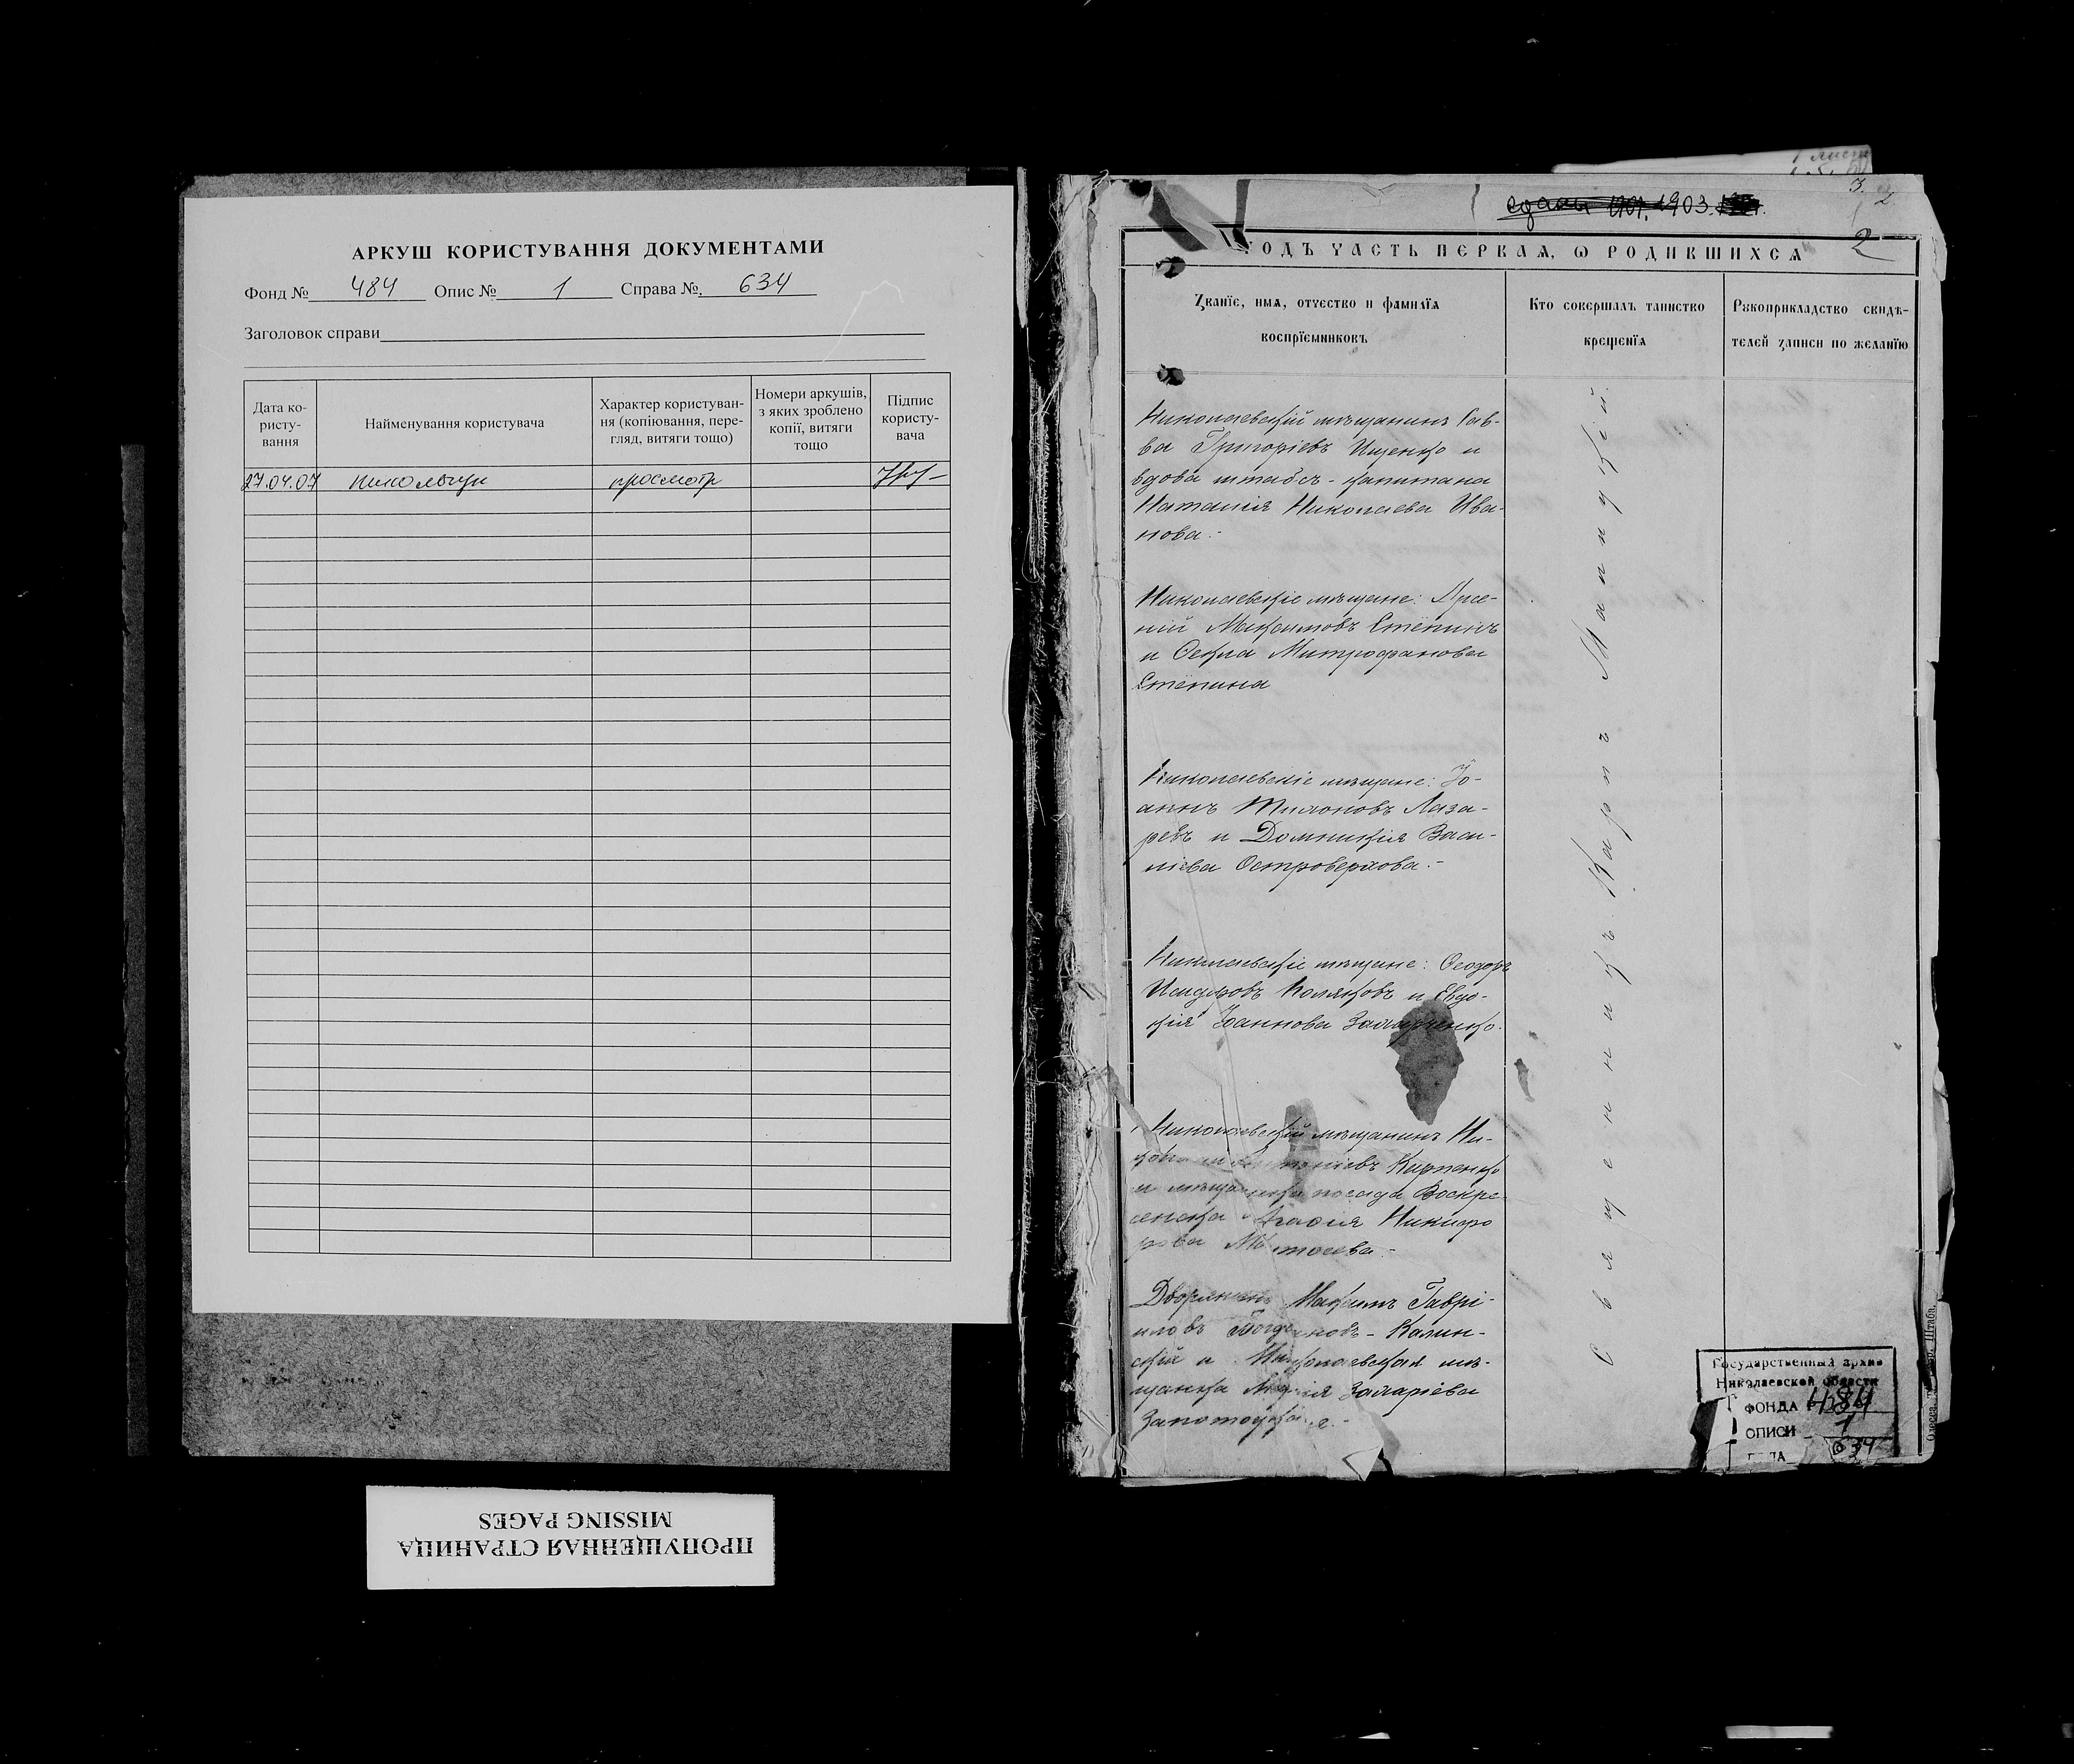 АРКУШ КОРИСТУВАННЯ ДОКУМЕНТАМИ
Фонд № 484 Опис № 1 Справа № 634
Заголовок справи
Дата ко-
ристу-
вання
Найменування користувача
Характер користуван-
ня (копіювання, пере-
гляд, витяги тощо)
Номери аркушів,
з яких зроблено
копії, витяги
тощо
Підпис
користу-
вача
27.04.07 просмотр
ПРОПУЩЕННАЯ СТРАНИЦА
MISSING PAGES
1903
3.
2
2
ГОДЪ ЧАСТЬ ПЕРВАЯ, Ѡ РОДИВШИХСЯ
Званїе, имя, отчество и фамилїя
воспрїемниковъ
Кто совершалъ таинство
крещенїя
Рукоприкладство свидѣ-
телей записи по желанїю
Николаевскій мѣщанинъ Сав-
ва Григоріевъ Ищенко и
вдова штабсъ-капитана
Наталія Николаева Ива-
нова.-
Николаевскіе мѣщане: Арсе-
ній Максимовъ Стёпинъ
и Ѳекла Митрофанова
Стёпина
Николаевскіе мѣщане: Іо-
аннъ Лаза-
ревъ и Домникія Васи-
ліева Островерхова.-
Николаевскіе мѣщане: Ѳеодоръ
Исидоровъ Поляковъ и Евдо-
кія Іоаннова
Николаевскій мѣщанинъ Ни-
Карпенко
и мѣщанка посада Воскре-
сенска Агаѳія Никифо
рова
Дворянинъ Максимъ Гаврі-
иловъ Калин-
скій и Николаевская мѣ-
щанка Марія Захаріева
Священникъ Карпъ
Государственный архив
Николаевской области
ФОНДА 484
ОПИСИ 1
634